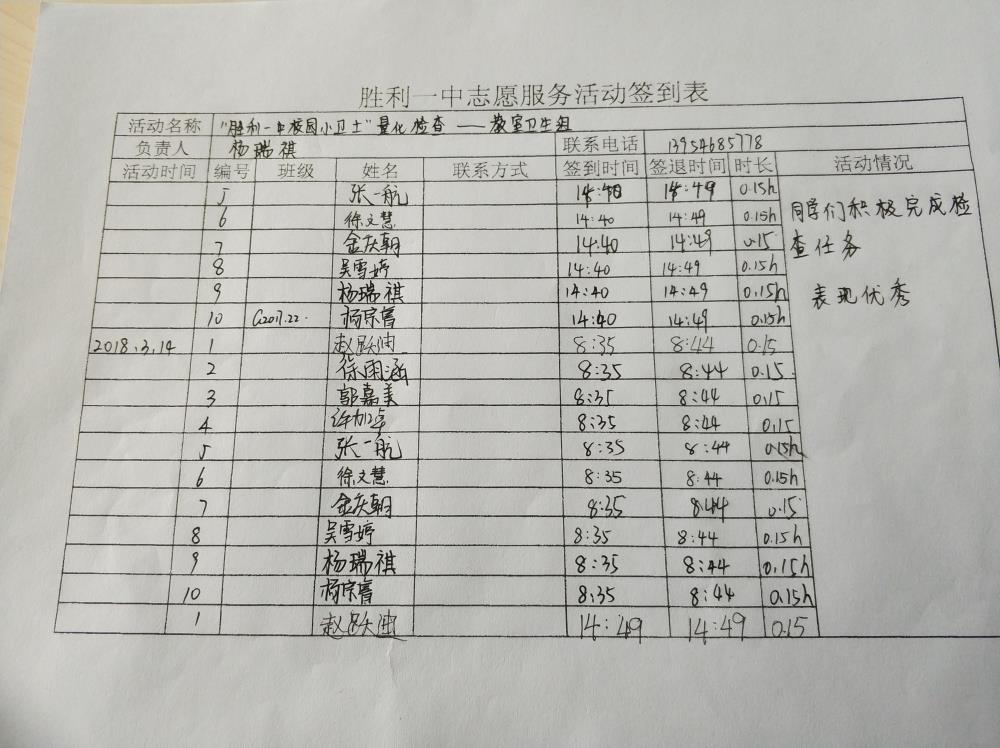 胜利一中志愿服务活动签到表
活动名称 "胜利一中校园小卫士"量化检查——教室卫生组
负责人 杨瑞祺 联系电话 13954685778
活动时间 编号 班级 姓名 联系方式 签到时间 签退时间 时长 活动情况
5 张一航 14:40 14:49 0.15h
6 徐文慧 14:40 14:49 0.15h 同学们积极完成检
7 金庆朝 14:40 14:49 0.15 查任务
8 吴雪婷 14:40 14:49 0.15h
9 杨瑞祺 14:40 14:49 0.15h 表现优秀
10 C2017.22. 杨宗 14:40 14:49 0.15h
2018.3.14 1 赵跃迪 8:35 8:44 0.15
2 徐雨涵 8:35 8:44 0.15
3 郭嘉美 8:35 8:44 0.15
4 8:35 8:44 0.15
5 张一航 8:35 8:44 0.15h
6 徐文慧 8:35 8:44 0.15h
7 金庆朝 8:35 8:44 0.15
8 吴雪婷 8:35 8:44 0.15h
9 杨瑞祺 8:35 8:44 0.15h
10 杨宗 8:35 8:44 0.15h
1 赵跃迪 14:49 14:49 0.15